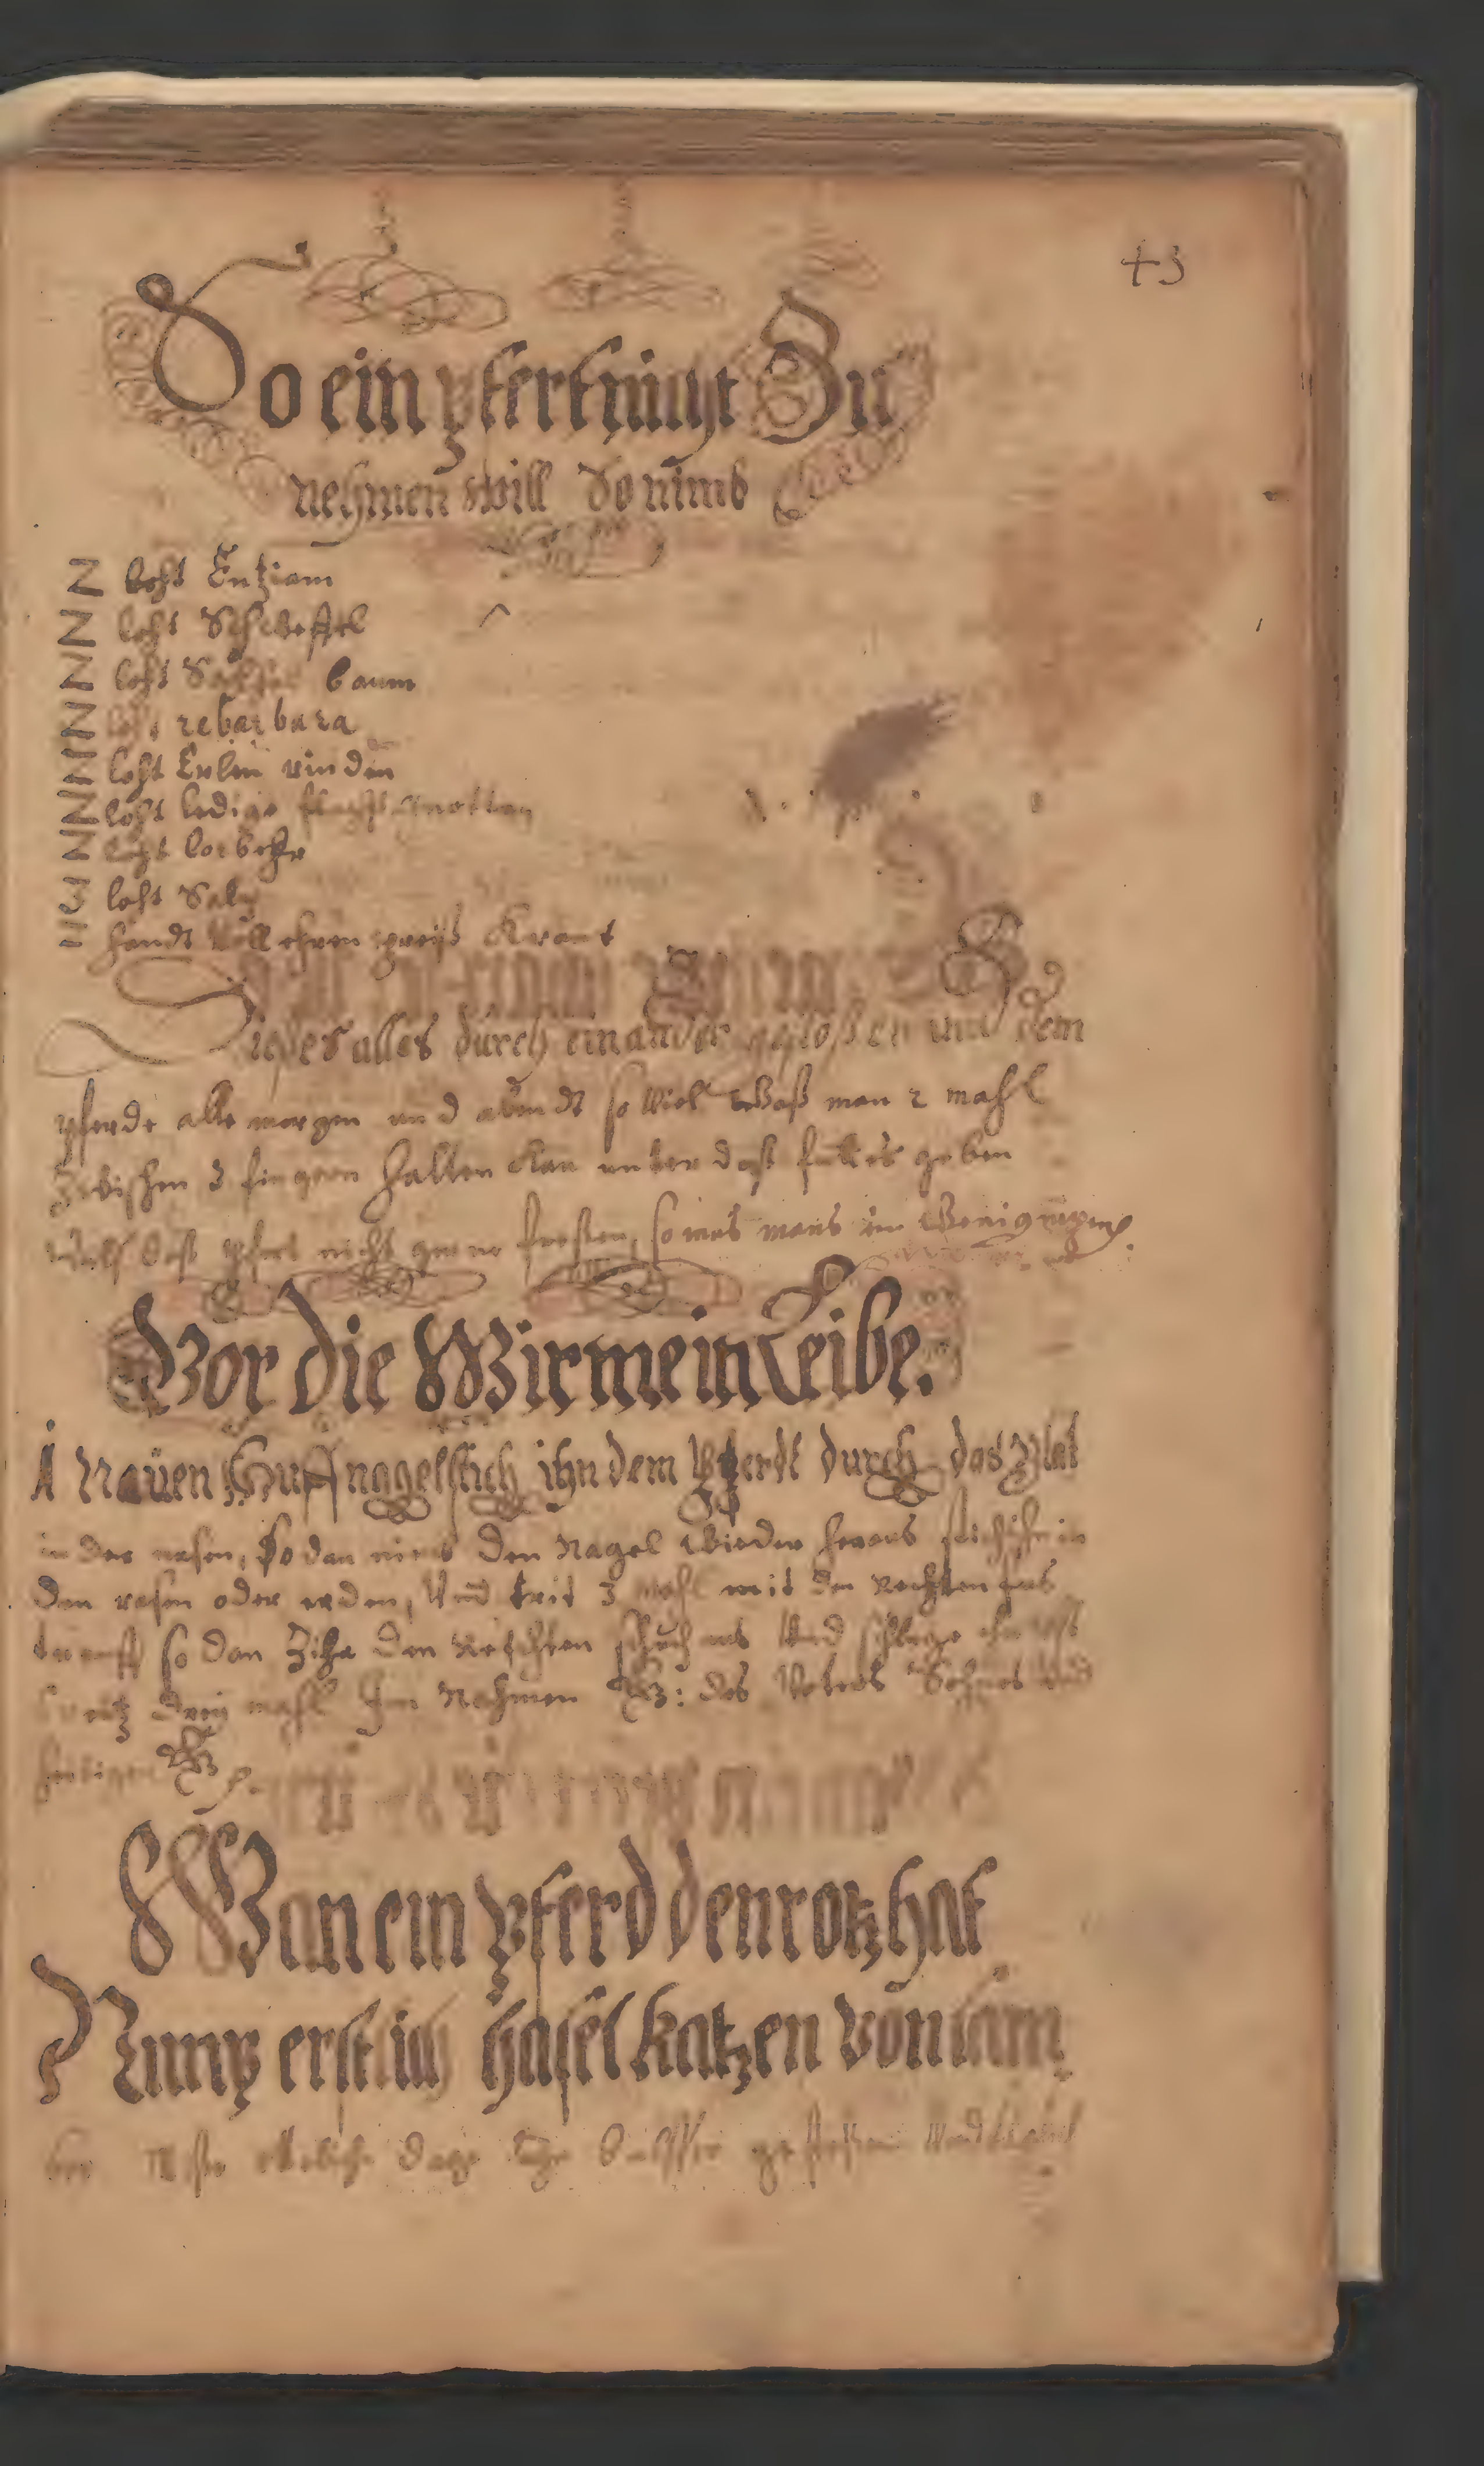 43
So ein pfert nicht Zu
nehmen will So nimb
2 loht Entziam
2 loht Schweffel
2 loht baum
2 loht rebarbara
2 loht Erlen rinden
2 loht ledige knotten
2 loht lorbehr
3 loht Saltz
11 handt Voll ehren preiß Kraut
Dieses alles durch einander gestoßen und dem
pferde alle morgen und abendt so Viel Waß man 2 mahl
Zwischen 3 fingern halten Kan unter daß futter geben
daß pfert nicht gerne freßen, so mus mans im Wenig
Vor die Wirme in Leibe.
1 Nauen Huff nagel stich ihn dem Pferdt durch das Blat
in der nasen, So dan nimb Den Nagel Wieder heraus stich ihn in
Den rasen oder erden, Und trit 3 mahl mit den rechten fus
drauff so dan Zihe den rechten schuch aus Und schlage
Creutz drey mahl Im Nahmen G: des Vaters Sohnes und
heiligen G
Wan ein pferd den rotz hat
Nimp erstlich hasel katzen von
etliche Dage gestoßen Und